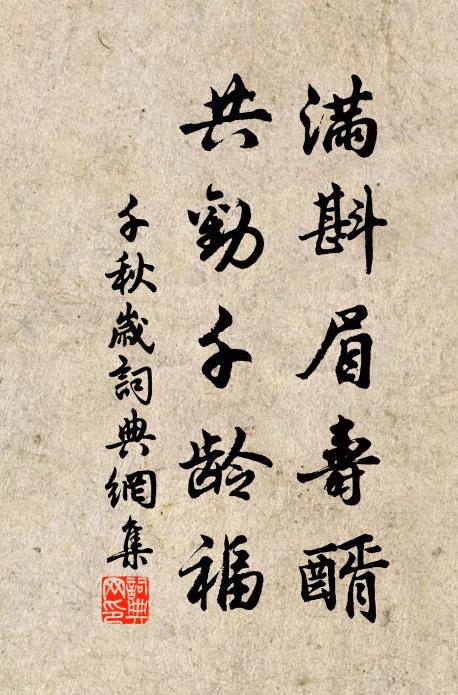 滿斟眉壽醑
共勸千齡福
千秋歲詞典網集
詞典
网印